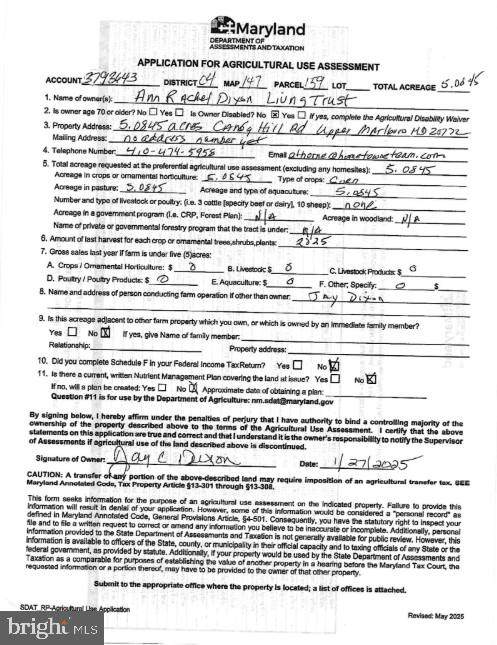 Maryland
DEPARTMENT OF
ASSESSMENTS AND TAXATION
APPLICATION FOR AGRICULTURAL USE ASSESSMENT
ACCOUNT 3798643 DISTRICT 04 MAP 147 PARCEL 159 LOT TOTAL ACREAGE 5.0845
1. Name of owner(s): Ann Rachel Dixon Living Trust
2. Is owner age 70 or older? No ☐ Yes ☐ Is Owner Disabled? No ☒ Yes ☐ If yes, complete the Agricultural Disability Waiver
3. Property Address: 5.0845 acres Candy Hill Rd Upper Marlboro MD 20772
Mailing Address: no address number yet
4. Telephone Number: 410-474-5958 Email athorne@hometowneteam.com
5. Total acreage requested at the preferential agricultural use assessment (excluding any homesites): 5.0845
Acreage in crops or ornamental horticulture: 5.0845 Type of crops:
Acreage in pasture: 5.0845 Acreage and type of aquaculture: 5.0845
Number and type of livestock or poultry: (i.e. 3 cattle [specify beef or dairy], 10 sheep): none
Acreage in a government program (i.e. CRP, Forest Plan): N/A Acreage in woodland: N/A
Name of private or governmental forestry program that the tract is under: N/A
6. Amount of last harvest for each crop or ornamental trees,shrubs,plants: 2025
7. Gross sales last year if farm is under five (5)acres:
A. Crops / Ornamental Horticulture: $ 0 B. Livestock: $ 0 C. Livestock Products: $ 0
D. Poultry / Poultry Products: $ 0 E. Aquaculture: $ 0 F. Other; Specify: 0 $
8. Name and address of person conducting farm operation if other then owner: Jay Dixon
9. Is this acreage adjacent to other farm property which you own, or which is owned by an immediate family member?
Yes ☐ No ☒ If yes, give Name of family member:
Relationship: Property address:
10. Did you complete Schedule F in your Federal Income Tax Return? Yes ☐ No ☒
11. Is there a current, written Nutrient Management Plan covering the land at issue? Yes ☐ No ☒
If no, will a plan be created: Yes ☐ No ☒ Approximate date of obtaining a plan:
Question #11 is for use by the Department of Agriculture: nm.sdat@maryland.gov
By signing below, I hereby affirm under the penalties of perjury that I have authority to bind a controlling majority of the
ownership of the property described above to the terms of the Agricultural Use Assessment. I certify that the above
statements on this application are true and correct and that I understand it is the owner's responsibility to notify the Supervisor
of Assessments if agricultural use of the land described above is discontinued.
Signature of Owner: Jay C Dixon Date: 1/27/2025
CAUTION: A transfer of any portion of the above-described land may require imposition of an agricultural transfer tax. SEE
Maryland Annotated Code, Tax Property Article §13-301 through §13-308.
This form seeks information for the purpose of an agricultural use assessment on the indicated property. Failure to provide this
information will result in denial of your application. However, some of this information would be considered a "personal record" as
defined in Maryland Annotated Code, General Provisions Article, §4-501. Consequently, you have the statutory right to inspect your
file and to file a written request to correct or amend any information you believe to be inaccurate or incomplete. Additionally, personal
information provided to the State Department of Assessments and Taxation is not generally available for public review. However, this
information is available to officers of the State, county, or municipality in their official capacity and to taxing officials of any State or the
federal government, as provided by statute. Additionally, if your property would be used by the State Department of Assessments and
Taxation as a comparable for purposes of establishing the value of another property in a hearing before the Maryland Tax Court, the
requested information or a portion thereof, may have to be provided to the owner of that other property.
Submit to the appropriate office where the property is located; a list of offices is attached.
SDAT_RP-Agricultural Use Application
Revised: May 2025
bright MLS